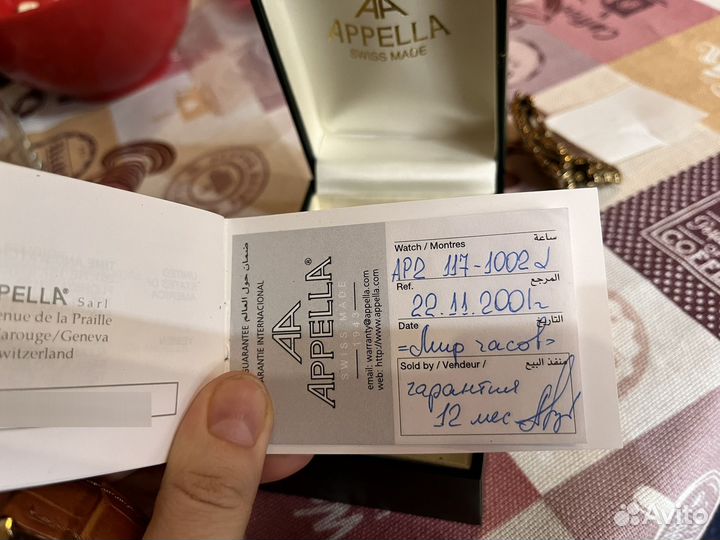 APPELLA
SWISS MADE
PELLA® Sarl
enue de la Praille
arouge/Geneva
witzerland
GUARANTEE ضمان حول العالم
GARANTIE INTERNACIONAL
APPELLA®
SWISS MADE
1943
email: warranty@appella.com
web: http://www.appella.com
Watch / Montres ساعة
AP2 117-1002
Ref. المرجع
22.11.2001г
Date التاريخ
«Мир часов»
Sold by / Vendeur / منفذ البيع
гарантия
12 мес
Avito